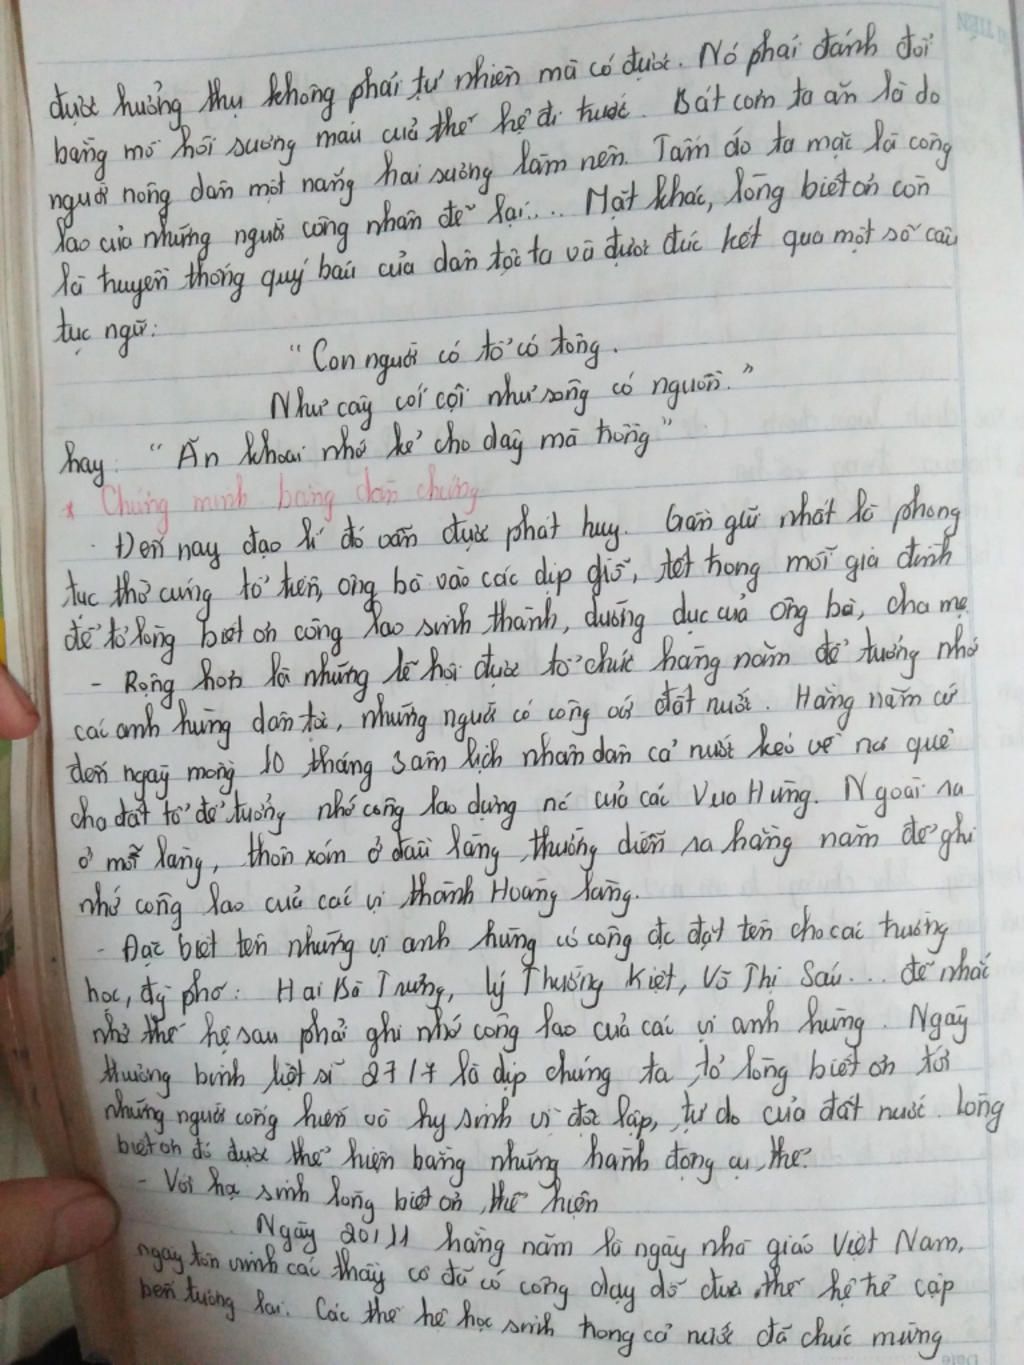 được hưởng thụ không phải tự nhiên mà có được. Nó phải đánh đổi
bằng mồ hôi sương máu của thế hệ đi trước. Bát cơm ta ăn là do
người nông dân một nắng hai sương làm nên. Tấm áo ta mặc là công
lao của những người công nhân để lại... Mặt khác, lòng biết ơn còn
là truyền thống quý báu của dân tộc ta và được đúc kết qua một số câu
tục ngữ:
"Con người có tổ có tông.
Như cây cối cội như sông có nguồn."
hay: "Ăn khoai nhớ kẻ cho dây mà trồng"
* Chứng minh bằng dẫn chứng
- Đến nay đạo lí đó vẫn được phát huy. Gần gũi nhất là phong
tục thờ cúng tổ tiên, ông bà vào các dịp giỗ, tết trong mỗi gia đình
để tỏ lòng biết ơn công lao sinh thành, dưỡng dục của ông bà, cha mẹ
- Rộng hơn là những lễ hội được tổ chức hàng năm để tưởng nhớ
các anh hùng dân tộc, những người có công với đất nước. Hàng năm cứ
đến ngày mồng 10 tháng 3 âm lịch nhân dân cả nước kéo về nơi quê
cha đất tổ để tưởng nhớ công lao dựng nước của các Vua Hùng. Ngoài ra
ở mỗi làng, thôn xóm ở đầu làng thường diễn ra hàng năm để ghi
nhớ công lao của các vị thành Hoàng làng.
- Đặc biệt tên những vị anh hùng có công đc đặt tên cho các trường
học, đg phố: Hai Bà Trưng, Lý Thường Kiệt, Võ Thị Sáu... để nhắc
nhở thế hệ sau phải ghi nhớ công lao của các vị anh hùng. Ngày
thương binh liệt sĩ 27/7 là dịp chúng ta tỏ lòng biết ơn tới
những người cống hiến và hy sinh vì độc lập, tự do của đất nước. Lòng
biết ơn đó được thể hiện bằng những hành động cụ thể.
- Với học sinh lòng biết ơn thể hiện
Ngày 20/11 hàng năm là ngày nhà giáo Việt Nam,
ngày tôn vinh các thầy cô đã có công dạy dỗ đưa thế hệ trẻ cập
bến tương lai. Các thế hệ học sinh trong cả nước đã chúc mừng